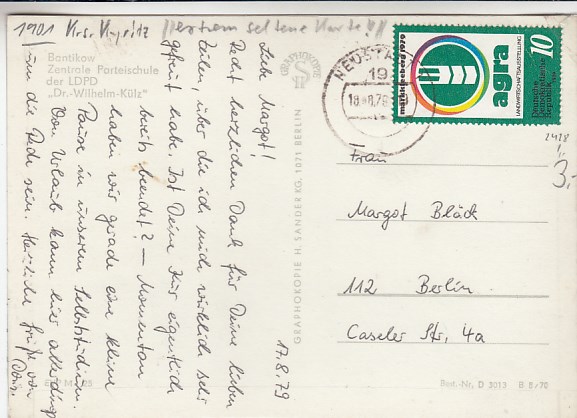 1901 Krs. Kyritz !! extrem seltene Karte !!
Bantikow
Zentrale Parteischule
der LDPD
„Dr.-Wilhelm-Külz"
17.8.79
Liebe Margot!
Recht herzlichen Dank für Deine lieben
Zeilen über die ich mich wirklich sehr
gefreut habe. Ist Deine Kur eigentlich
bereits beendet? – Momentan
haben wir gerade eine kleine
Pause in unserem Selbststudium.
Von Urlaub kann hier allerdings
nicht die Rede sein. Herzliche Grüße von
GRAPHOKOPIE
H S
GRAPHOKOPIE H. SANDER KG, 1071 BERLIN
NEUSTADT
19
18.8.79
markkleeberg 1979
agra
LANDWIRTSCHAFTSAUSSTELLUNG
10
Deutsche
Demokratische
Republik
2428
3,-
Frau
Margot Bläck
112 Berlin
Caseler Str. 4a
Best.-Nr. D 3013 B 8/70